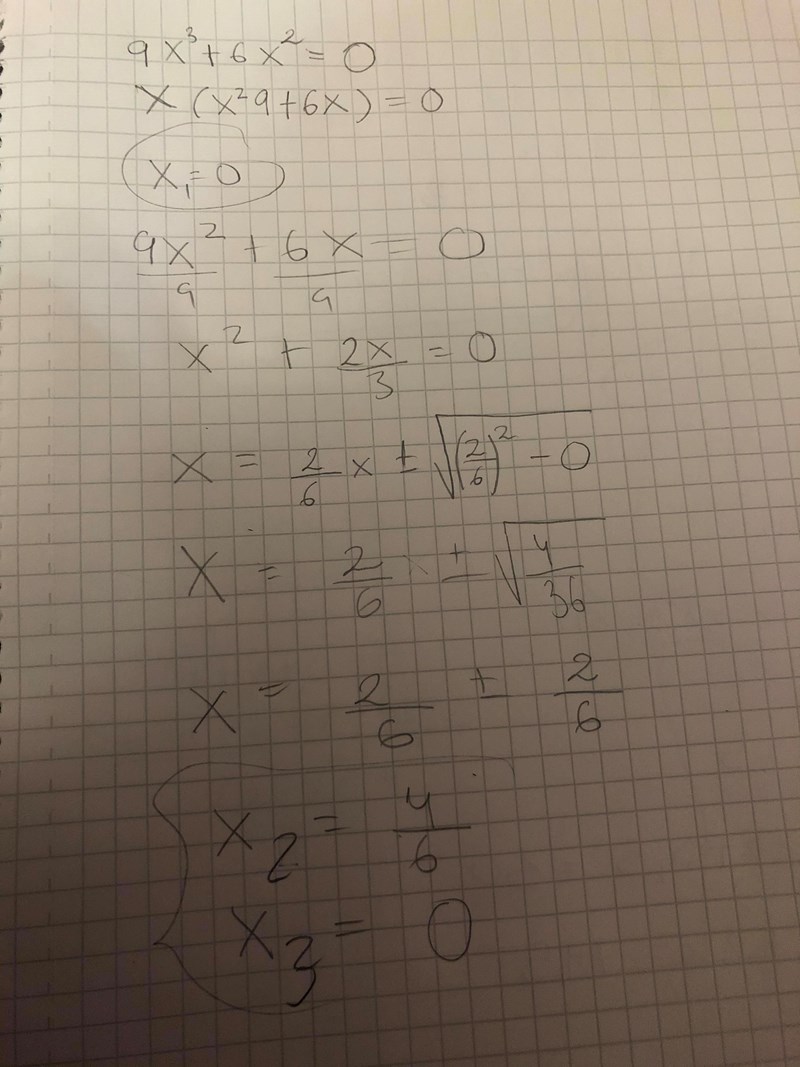 9x³+6x²=0
x(x²9+6x)=0
x₁=0
9x²/9 + 6x/9 = 0
x² + 2x/3 = 0
x = 2/6 x ± √((2/6)² - 0)
x = 2/6 ± √(4/36)
x = 2/6 ± 2/6
x₂ = 4/6
x₃ = 0